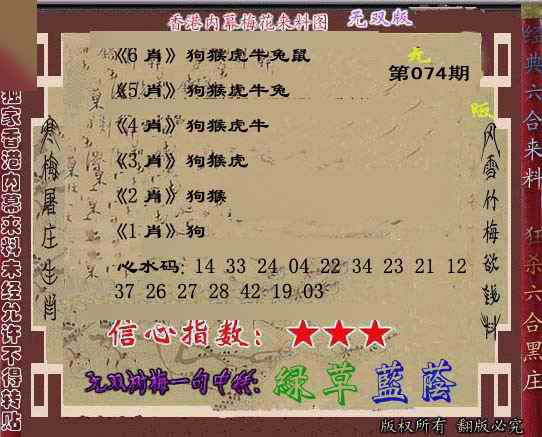 香港内幕梅花来料图 无双版
《6 肖》狗猴虎牛兔鼠
第074期
《5 肖》狗猴虎牛兔
《4 肖》狗猴虎牛
《3 肖》狗猴虎
《2 肖》狗猴
《1 肖》狗
心水码: 14 33 24 04 22 34 23 21 12
37 26 27 28 42 19 03
信心指数: ★★★
无双浏梅一句中特: 綠草藍蔭
版权所有 翻版必究
独家香港内幕来料未经允许不得转贴
寒梅屠庄生肖
风雪竹梅欲钱料
无
版
经典六合来料 狂杀六合黑庄